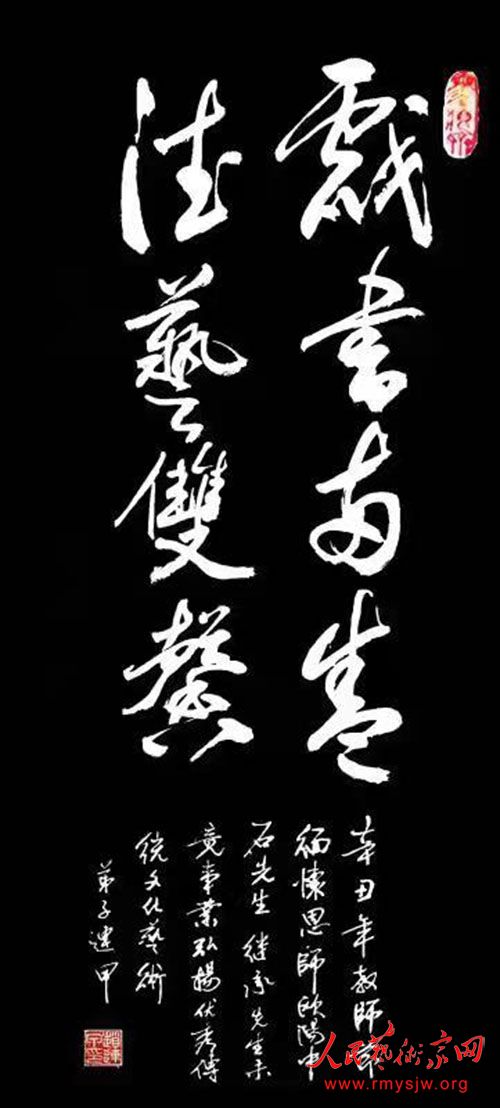 戲書兩盛
德藝雙馨
辛丑年教師節
緬懷恩師欧陽中
石先生继承先生未
竟事業弘揚优秀傳
统文化藝術
弟子連甲
人民藝術家网
www.rmysjw.org